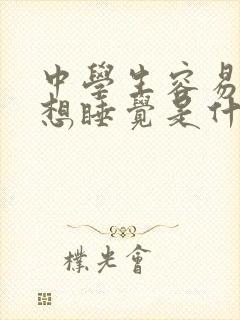 中學生容易
想睡覺是什
樸光會